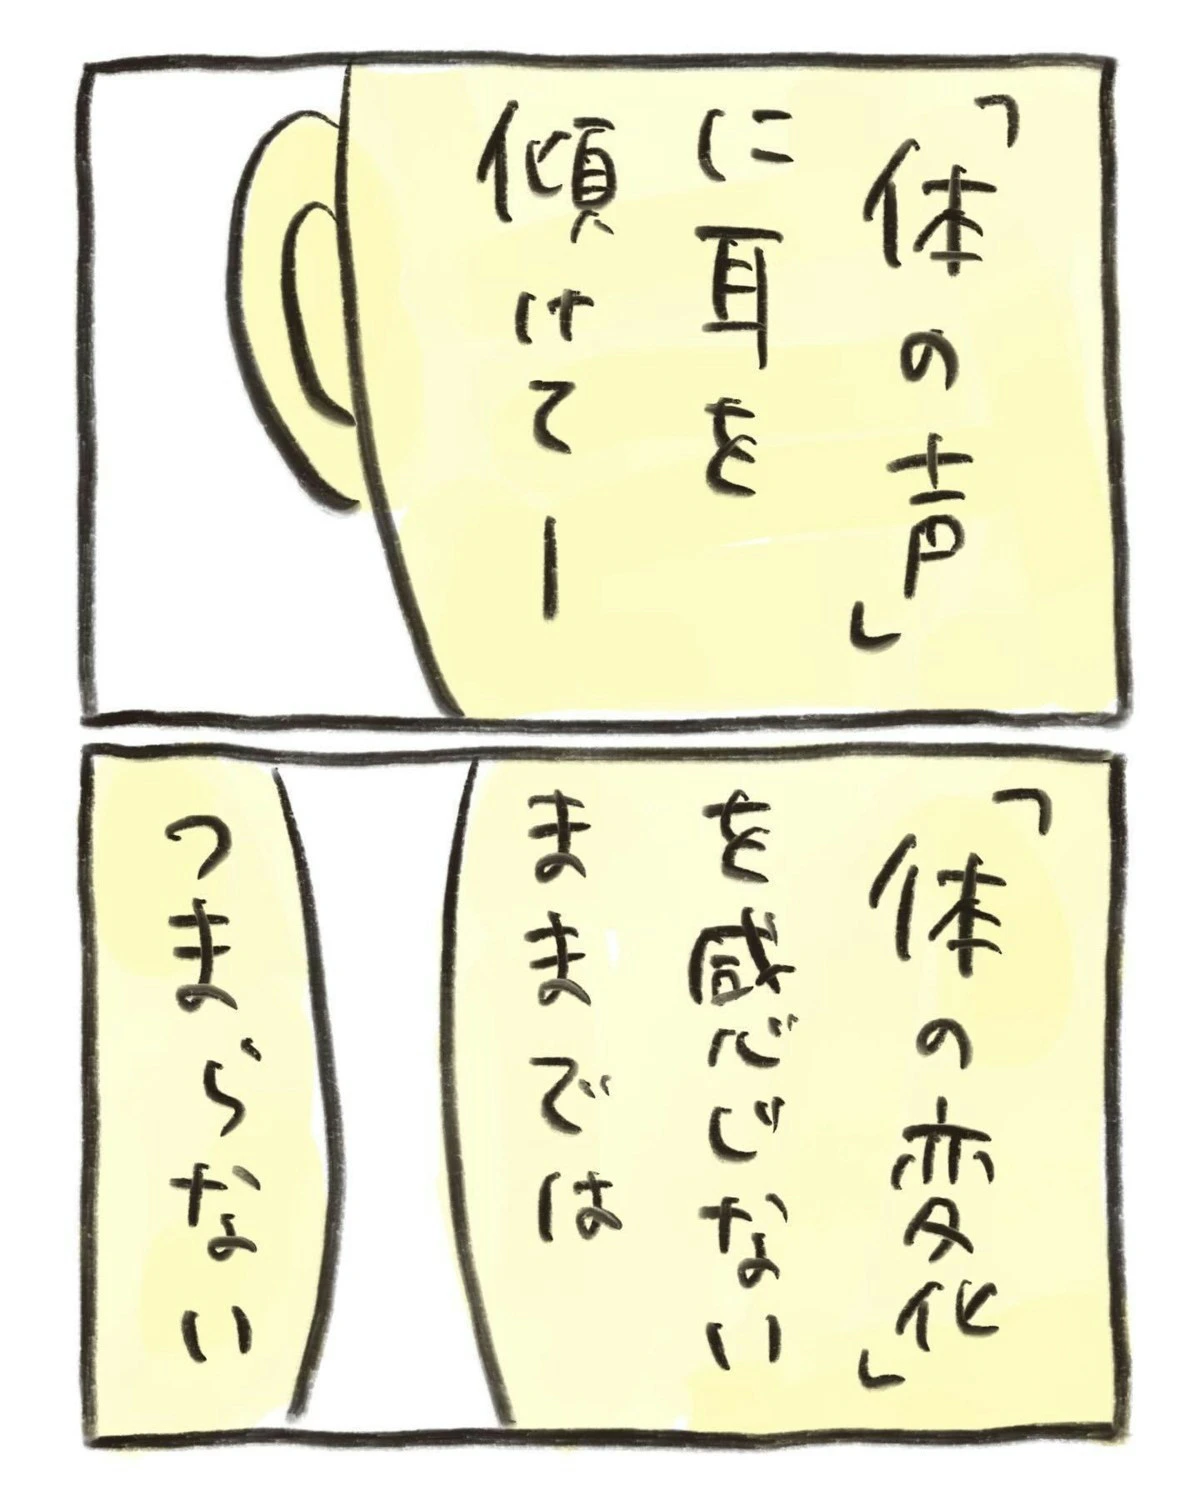 「体の声」
に耳を
傾けてー
「体の変化」
を感じない
ままでは
つまらない